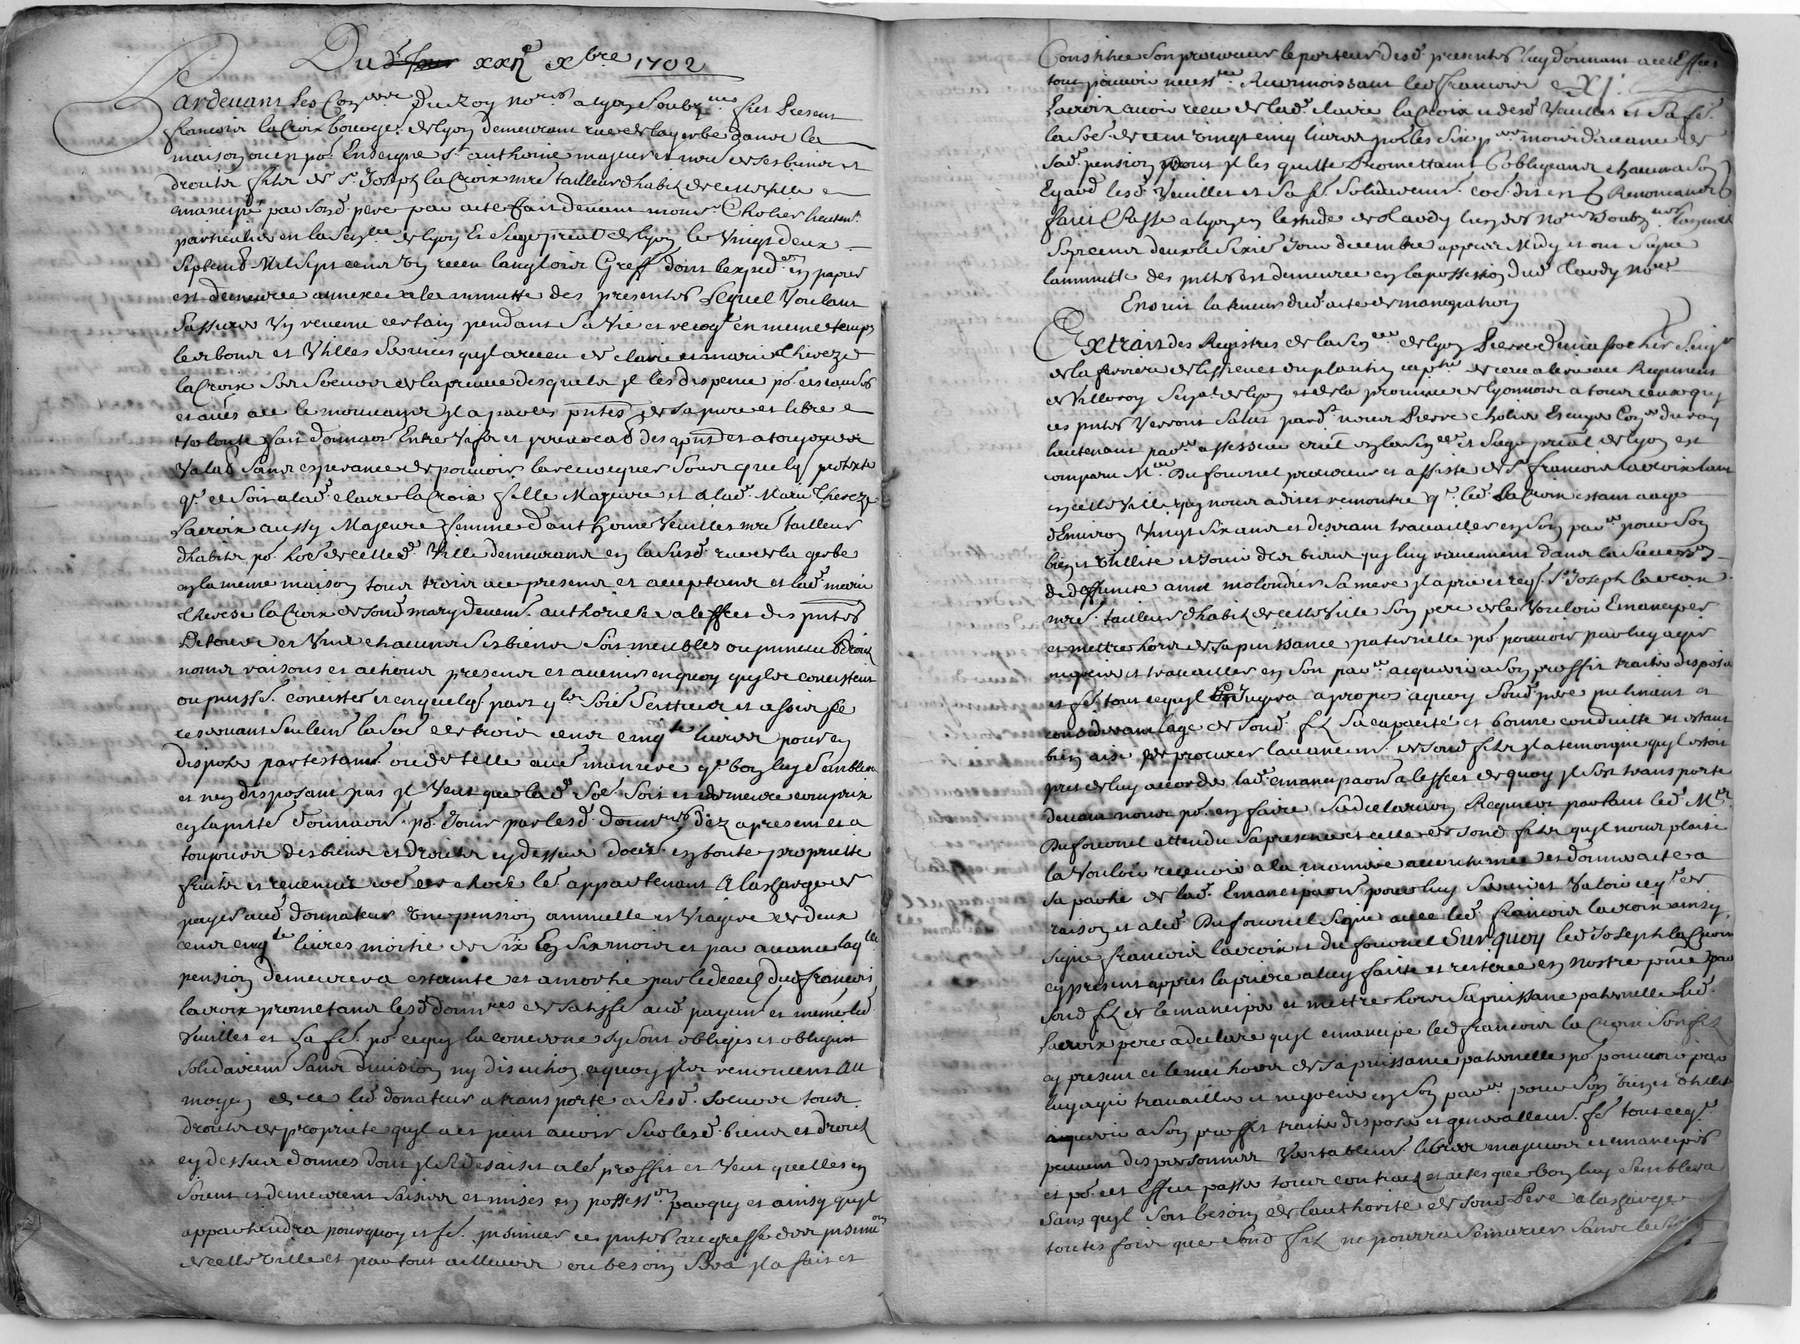 Du xxii xbre 1702
Pardevant les Con.ers du Roy no.res a lyon soubz.nez fut present
francois laCroix bourgeois de lyon demeurant rue de la gerbe dans la
maison ou est po.r Enseigne s.t anthoine majeur et m.re de ses biens et
droits fils de s.r Joseph laCroix m.re tailleur d'habitz de cette ville
emancipé par sond. pere par acte fait devant monsr Cholier lieuten.t
particulier en la Sen.ée de lyon Et Siege p.rial de lyon le Vingt deux
Septemb Mil Sept cens un receu Langlois Greff. dont lexped.on en papier
est demeurée annexée a la minutte des presentes Lequel Voulant
Sassurer un revenu certain pendant Sa Vie et recog.e en meme temps
les bons et Utilles Services quyl a receu de claire et marie therezе
laCroix Ses Soeurs de la preuve desquels yl les dispense
et avec ce le mouvant yl a par ces p.ntes de sa pure et libre
Volonté fait donnaon Entre Vifs et irrevocab des apnt et a toujours
Valab sans esperance de pouvoir la revoquer Sous quelq pretexte
q. ce soit a lad. claire laCroix fille Majeure et a lad. Marie Thereze
laCroix aussy Majeure femme d'anthoine Veuillet m.re tailleur
d'habits po. ho.e de cetted. Ville demeurans en la Susd. rue de la gerbe
en la meme maison tous trois icy presens et acceptans et lad. marie
therese laCroix de sond. mary deuem.t authorisée a leffect des p.ntes
De tous et Uns chacuns Ses biens Soit meubles ou immeub droits
noms raisons et actions presens et avenir en quoy quyls consistent
ou puiss.t consister et en quelq. part q.ls Soi.t Scitués et assis se
reservant Seulem.t la So.e de trois cens cinq.te livres pour en
disposer par testam.t ou de telle aut.e maniere q. bon luy Semblera
et n'en disposant pas yl Veut que lad. So.e Soit et demeure comprise
en la p.nte donnaon po. Jouir par lesd. donn.res dez apresent et a
toujours des biens et droits cy dessus en toute proprietté
fruits et revenus co.e de chose leu appartenant A la charge de
payer aud. donnateur Une pension annuelle et Viagere de deux
cens cinq.te livres moitié de Six En Six mois et par avance laq.lle
pension demeurera esteinte et amortie par le deceds dud. francois
lacroix promettans lesd. donn.res de satisfe aud. payem.t et meme led.
Veuillet et Sa fe. po. ce quy la concerne Sy Sont obligés et obligent
Solidairem.t Sans division ny discution a quoy yls renoncent Au
moyen de ce led. donateur a transporté a Sesd. Soeurs tous
droits de proprieté quyl a et peut avoir Sur lesd. biens et droits
cy dessus donnés dont yl s'est desaisit a leu proffit et Veut quelles en
Soient et demeurent Saisies et mises en possess.on par quy et ainsy quyl
appartiendra pourquoy et fe. insinuer ces p.ntes au greffe des insinu.ons
de cette Ville et partout ailleurs ou besoin Sera yl a fait et
Constitué Son procureur le porteur desd. presentes luy donnant a cet Effect
tout pouvoir necess.re Reconnoissant led. francois
Lacroix avoir receu de lad. claire laCroix et desd. Veuillet et Sa fe.
la So.e de cent Vingt cinq livres po. les Six p.ers mois d'avance de
sad. pension dont yl les quitte Promettant Obligeans chacun a Son
Egard lesd. Veuillet et Sa fe. Solidairem.t co.e dit est Renonceans
fait & Passé a lyon en lestude de Claudy l'un des No.res Soubz.nez Lan mil
Sept cens deux le Sixie. Jour decembre appres Midy et ont Signé
la minutte des p.ntes est demeurée en la possession dud. Claudy no.re
Ensuit la teneur dud. acte demancipation
Extrait des Registres de la Sen.ée de lyon Pierre
de la ferriere de lissieu et du plantin cap.ne de cavalerie au Regiment
de Villeroy Sen.al de lyon et de la province de lyonnois a tous ceux quy
ces p.ntes Verront Salut par d.t nous Pierre Cholier Escuyer Con.er du roy
lieutenant par.er assesseur cri.el en la Sen.ée et Siege presi.al de lyon est
comparu M.re Dufournel procureur et assisté de S.r francois lacroix
en cette Ville quy nous a dit et remontré q. led. laCroix estant aagé
denviron Vingt Six ans et desirant travailler en Son par.er pour Son
bien et Utilité et Jouir des biens quy luy reviennent dans la Succession
de deffunte molondier Sa mere yl a prié et req.s S.r Joseph lacroix
m.re tailleur d'habitz de cette Ville Son pere de le Vouloir Emanciper
et mettre hors de Sa puissance paternelle po. pouvoir par luy agir
negocier et travailler en Son par.er acquerir a Son proffit traiter disposer
et fe. tout ce quyl Jugera apropos aquoy Sond. pere inclinant et
considerant lage de Sond. fils Sa capacité et bonne conduitte et estant
bien aise de procurer lavancem.t de Sond. fils yl a temoigné quyl estoit
prest de luy accorder lad. emancipaon a leffect de quoy yl s'est transporté
devant nous po. en faire Sa declaraon Requiert partant led. M.re
Dufournel attendu Sa presence et celle de Sond. fils quyl nous plaise
la Vouloir recevoir a la maniere accoutumée et donner acte a
Sa partie de lad. Emancipaon pour luy Servir et Valoir ce q. de
raison et a led. Dufournel Signé avec led. francois lacroix ainsy
Signé francois lacroix et dufournel Sur quoy led. Joseph laCroix
cy present appres la priere a luy faite et reiterée en nostre p.nce par
Sond. fils de lemanciper et mettre hors Sa puissance paternelle led.
Lacroix pere a declaré quyl emancipe led. francois laCroix Son fils
cy present et le met hors de Sa puissance paternelle po. pouvoir par
luy agir travailler et negocier en Son par.er pour Son bien et Utilité
acquerir a Son proffit traiter disposer et generallem.t fe. tout ce q.
peuvent des personnes Veritablem.t libres majeurs et emancipés
et po. cet Effect passer tous contracts et actes que bon luy Semblera
Sans quyl Soit besoin de lauthorité de Sond. Pere a la charge
toutes fois que Sond. fils ne pourra Se marier Sans le